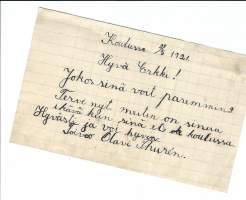 Koulussa 1921.
Hyvä Erkki!
Jokos sinä voit paremmin?
Terve nyt, meitin on sinua
ikävä kun sinä et ole koulussa
Hyvästi ja voi hyvin
toivoo Olavi Thurén.